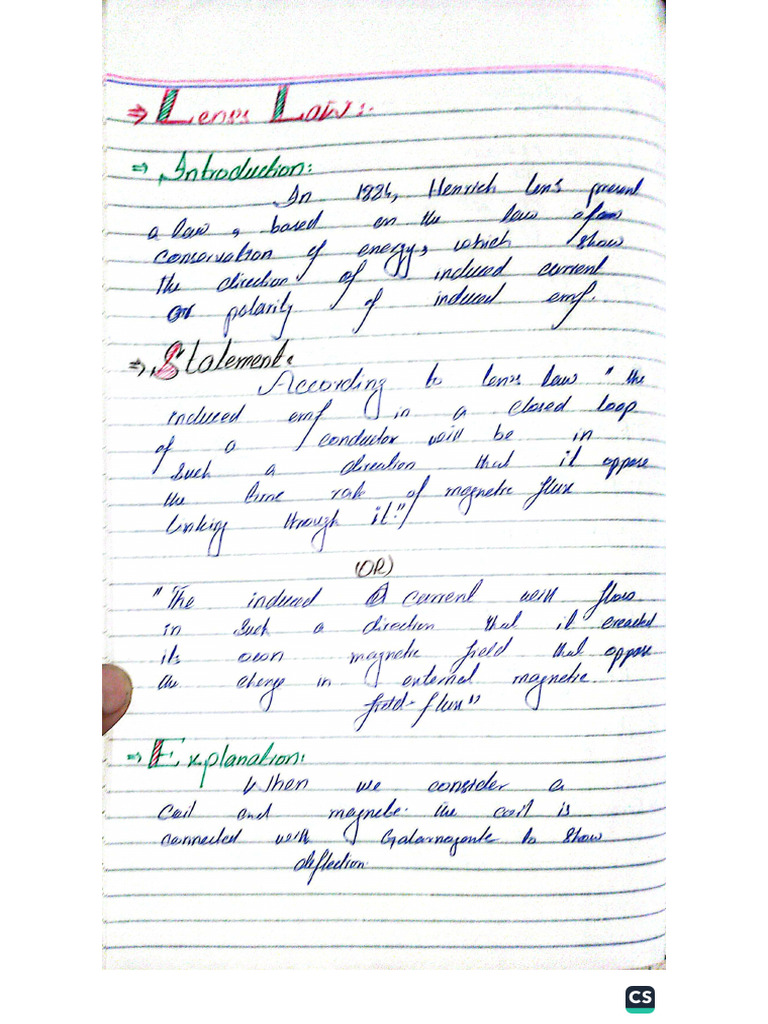 ⇒ Lens Law:-
⇒ Introduction:
In Henrich Len's present
a law, based on the law of
conservation of energy, which show
the direction of induced current
or polarity of induced emf.
⇒ Statement:
According to lens law "the
induced emf in a closed loop
of a conductor will be in
such a direction that it oppose
the time rate of magnetic flux
linking through it."
(OR)
"The induced current will flows
in such a direction that it creacted
its own magnetic field that oppose
the change in external magnetic
field-flux"
⇒ Explanation:
When we consider a
coil and magnete. the coil is
connected with to show
deflection
CS